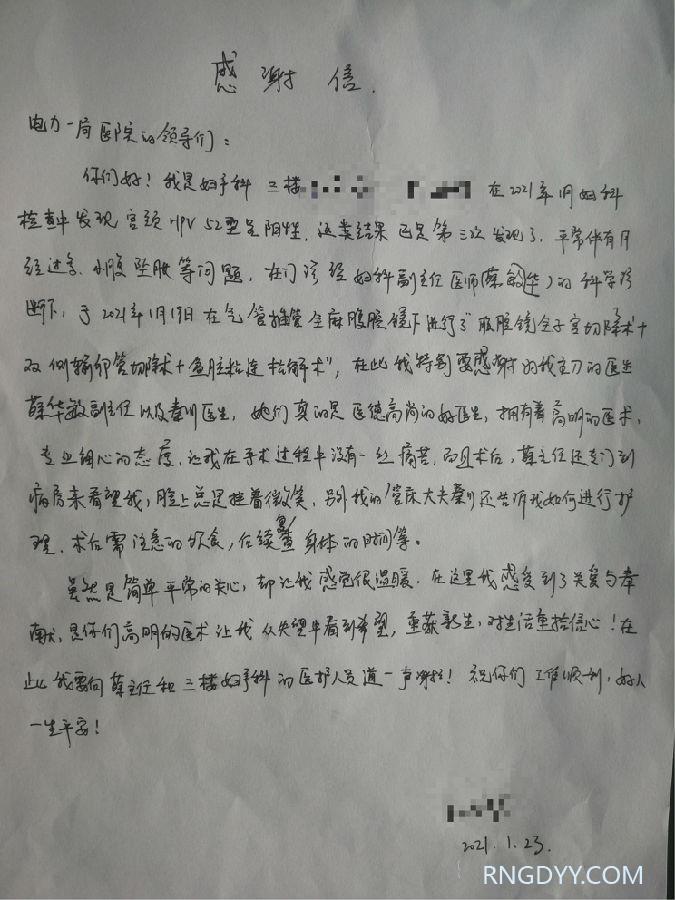 感谢信.
电力一局医院的领导们：
你们好！我是妇产科三楼 在2021年1月妇科
检查中发现宫颈HPV 52型呈阳性，这类结果已是第三次发现了，平常伴有月
经过多、小腹坠胀等问题，在门诊经妇科副主任医师（ ）的科学诊
断下，于2021年1月19日在气管插管全麻腹腔镜下进行了"腹腔镜全子宫切除术+
双侧输卵管切除术+盆腔粘连松解术"，在此我特别要感谢的我主刀的医生
副主任以及秦川医生，她们真的是医德高尚的好医生，拥有着高明的医术，
专业细心的态度，让我在手术过程中没有一丝痛苦，而且术后，主任还专门到
病房来看望我，脸上总是挂着微笑，我的"管床大夫秦川还告诉我如何进行护
理、术后需注意的饮食，后续复查身体的时间等。
虽然是简单平常的关心，却让我感觉很温暖，在这里我感受到了关爱与奉
献，是你们高明的医术让我从失望中看到希望，重获新生，对生活重拾信心！在
此我要向主任和三楼妇产科的医护人员道一声谢谢！祝你们工作顺利，好人
一生平安！
2021.1.23.
RNGDYY.COM